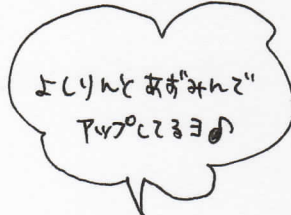 よしりんとあずみんで
アップしてるヨ♪